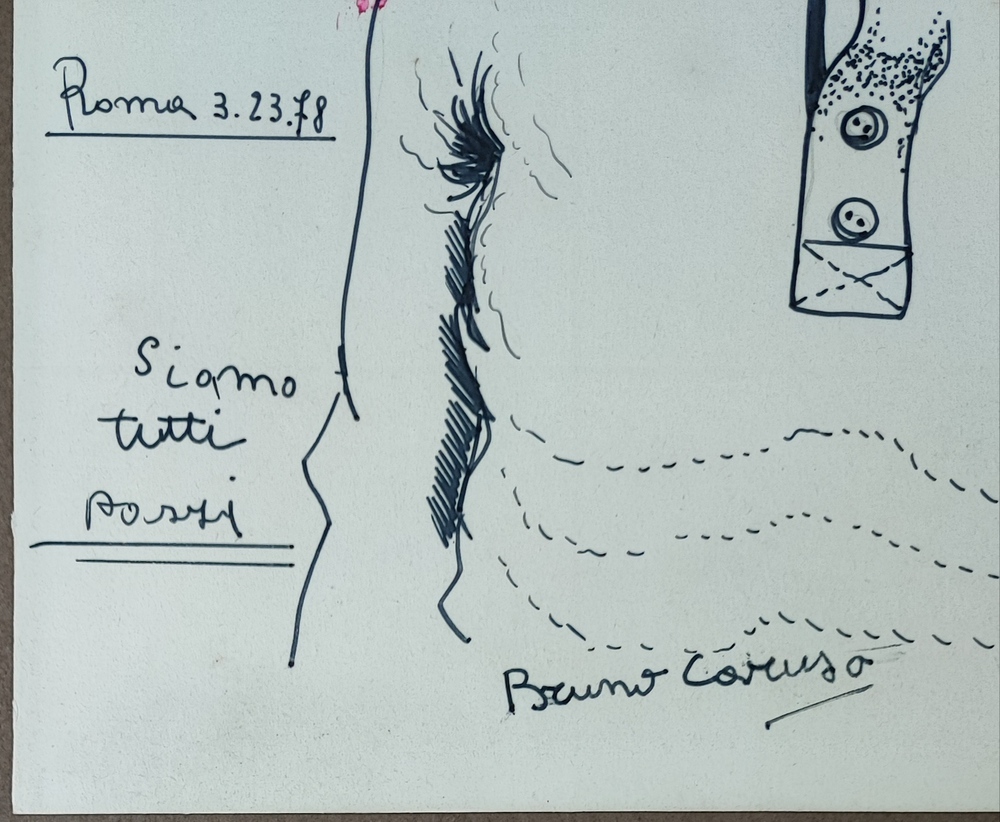 Roma 3.23.78
Siamo
tutti
pazzi
Bruno Caruso